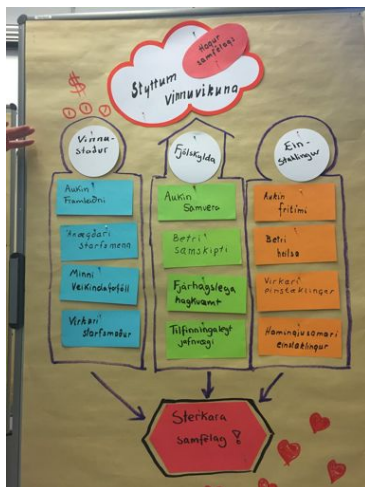 Hagur
samfélags
Styttum
vinnuvikuna
$
Vinnu-
staður
Aukin
Framleiðni
Ánægðari
starfsmenn
Minni
Veikindaforföll
Virkari
starfsmaður
Fjölskylda
Aukin
Samvera
Betri
samskipti
Fjárhagslega
hagkvæmt
Tilfinningalegt
jafnvægi
Ein-
staklingur
Aukin
frítími
Betri
heilsa
Virkari
einstaklingar
Hamingjusamari
einstaklingur
Sterkara
samfélag !